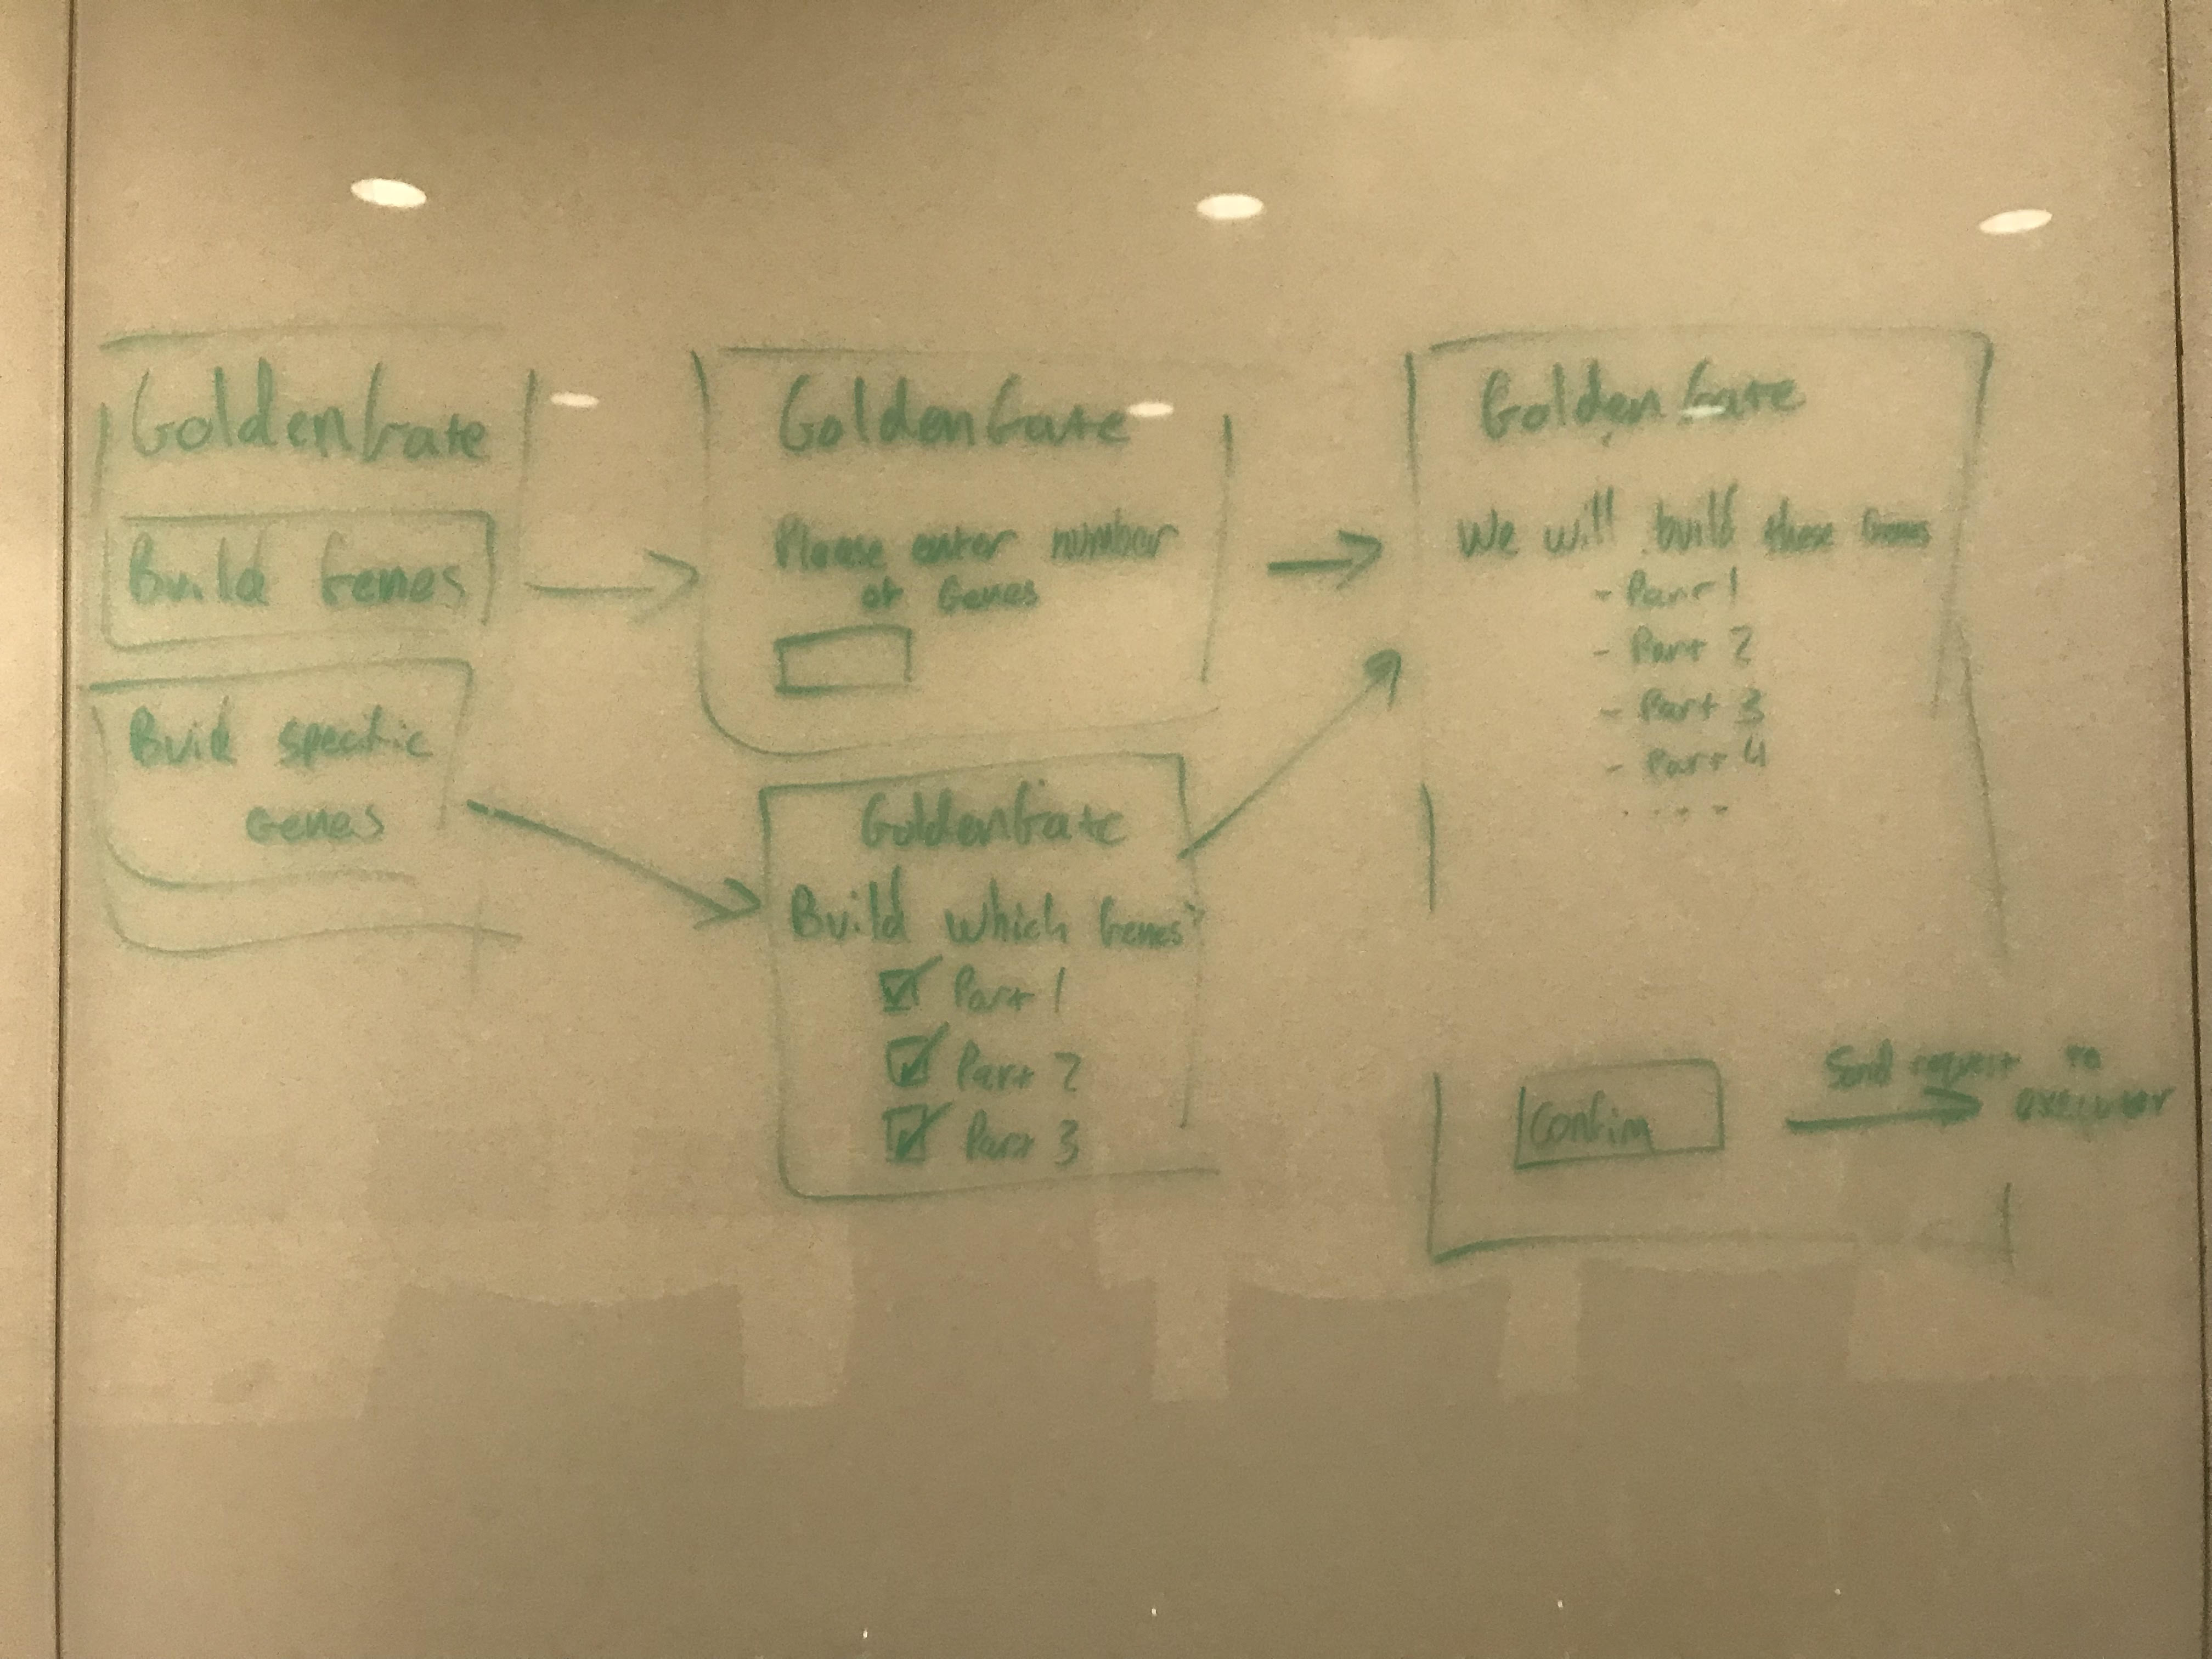 GoldenGate
Build Genes
Build specific
Genes
GoldenGate
Please enter number
of Genes
GoldenGate
Build which Genes?
Part 1
Part 2
Part 3
GoldenGate
We will build these Genes
- Part 1
- Part 2
- Part 3
- Part 4
....
Confirm
Send request to
executor